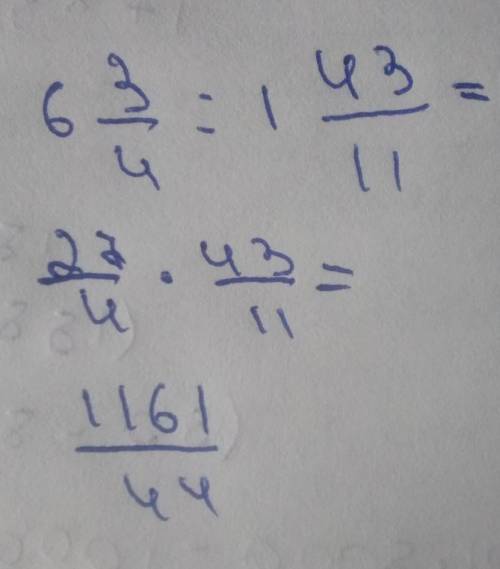 6 3/4 : 1 43/11 =
27/4 · 43/11 =
1161/44